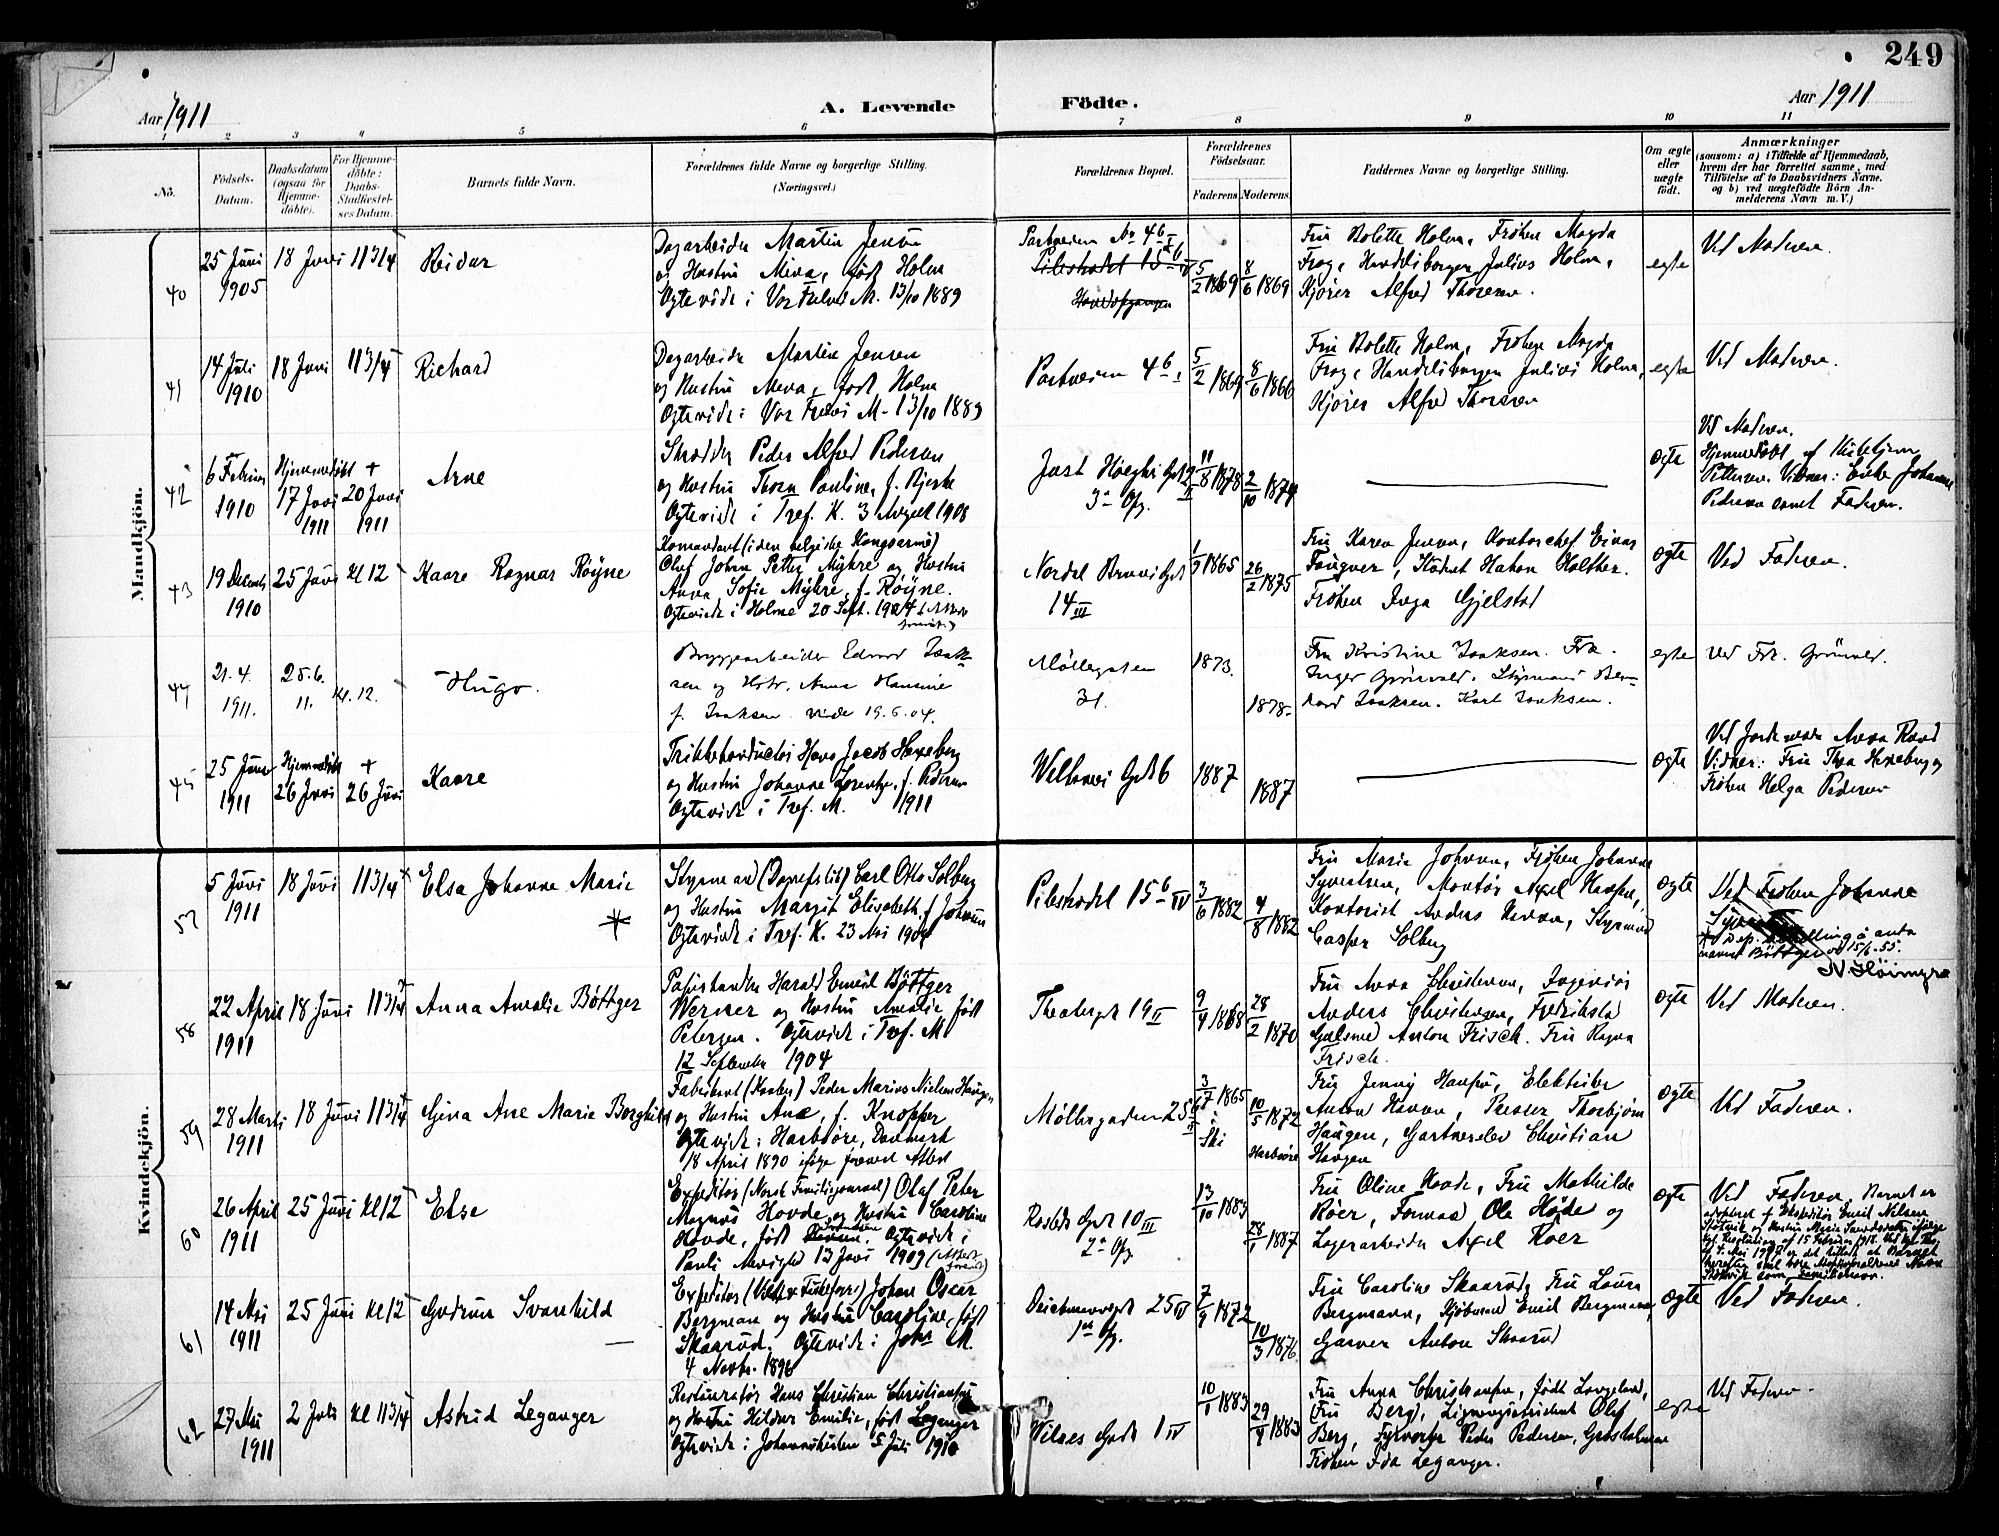 249
Aar 1911
A. Levende Födte.
Aar 1911
1 2 3 4 5 6 7 8 9 10 11
No.
Födsels-
Datum.
Daabsdatum
(ogsaa for
Hjemme-
döbte).
For Hjemme-
döbte:
Daabs-
Stadfæstel-
ses Datum.
Barnets fulde Navn.
Forældrenes fulde Navne og borgerlige Stilling.
(Næringsvei.)
Forældrenes Bopæl.
Forældrenes
Födselsaar.
Faderens
Moderens
Faddernes Navne og borgerlige Stilling.
Om ægte
eller
uægte
født.
Anmærkninger
(saasom: a) i Tilfælde af Hjemmedaab,
hvem der har forrettet samme, med
Tilföielse af to Daabsvidners Navne,
og b) ved uægtefödte Börn An-
melderens Navn m. V.)
Mandkjön.
40
25 Juni
1905
18 Juni
11 3/4
Reidar
Dagarbeider Martin Jensen
og Hustru Meva, født Holm
Ogtevidt i Vor Frelsers M. 13/10 1889
Parkveien No 46 I
Pilestrædet 15 b IV
5/2 1869
8/6 1869
Fru Bolette Holm, Frøken Magda
Frog, Handelsborger Julius Holm,
Kjører Alfred Thoresen.
egte
Ved Moderen
41
14 Juli
1910
18 Juni
11 3/4
Richard
Dagarbeider Martin Jensen
og Hustru Meva, født Holm
Ogtevidt i Vor Frelsers M. 13/10 1889
Parkveien 46 I
5/2 1869
8/6 1866
Fru Bolette Holm, Frøken Magda
Frog, Handelsborger Julius Holm,
Kjører Alfred Thoresen
egte
Ved Moderen.
42
6 Februar
1910
Hjemmedøbt
17 Juni
1911
+
20 Juni
1911
Arne
Skrædder Peder Alfred Pedersen
og Hustru Thora Pauline, f. Bjerke
Ogtevidt i Tref. K. 3 August 1908
Just Høeghs Gd 2 II
3die Opg.
11/8 1878
2/10 1874
ogte
Ved Moderen.
Hjemmedøbt af Kirketjener
Pettersen. Vidner: Enke Johanne
Pedersen samt Faderen.
43
19 Decemb
1910
25 Juni
kl 12
Kaare Ragnar Röyne
Komandant (i den belgiske Kongoarmé)
Oluf Johan Petter Myhre og Hustru
Anna Sofie Myhre, f. Röyne.
Ogtevidt i Holme 20 Sept. 1904
Nordal Bruns Gd
14 III
1865
26/2 1875
Fru Karen Jensen, Kontorchef Einar
Fougner, Student Hakon Holther.
Frøken Inga Gjelstad
ogte
Ved Faderen.
44
21. 4.
1911.
25. 6.
11.
kl. 12.
Hugo.
Bryggearbeider Edvard Isak-
sen og Hstr. Anna Hansine
f. Isaksen. viede 19.6.04.
Möllegaten
31.
1873.
1878.
Fru Kristine Isaksen. Frk.
Inger Grönvold. Styrmand Ber-
nard Isaksen. Karl Isaksen.
egte
Ved Frk. Grönvold.
45
25 Juni
1911
Hjemmedøbt
26 Juni
+
26 Juni
Kaare
Trikkekonductør Hans Jacob Hexeberg
og Hustru Johanne Lorentze, f. Pedersen
Ogtevidt i Tref. M. 1911
Welhavens Gd 6
1887
1887
ogte
Ved Jordemoder Anna Rund
Vidner: Fru Thea Hexeberg og
Frøken Helga Pedersen
Kvindekjön.
57
5 Juni
1911
18 Juni
11 3/4
Elsa Johanne Marie
*
Styrmand (Dampskib) Carl Otto Solberg
og Hustru Margit Elisabeth, f. Johnsen
Ogtevidt i Tref. K. 23 Mai 1904
Pilestrædet 15 b IV
3/6 1882
4/8 1882
Fru Marie Johnsen, Frøken Johanne
Syvertsen, Montør Axel Hansen,
Kontorist Anders Hansen, Styrmand
Casper Solberg
ogte
Ved Frøken Johanne
15/6-55.
N. Höimyr
58
22 April
1911
18 Juni
11 3/4
Anna Amalie Böttger
Papirhandler Harald Emil Böttger
Werner og Hustru Amalie født
Petersen. Ogtevidt i Tref. M
12 September 1904
Theatergt 19 II
9/9 1868
28/2 1870
Fru Anna Christensen, Ingeniør
Anders Christensen, Fredrikstad
Anton Frisch. Fru Ragna
Frisch.
ogte
Ved Moderen.
59
28 Marts
1911
18 Juni
11 3/4
Gjena Ane Marie Borghild
Fabrikant (Kaaber) Peder Marius Nielsen Haugen
og Hustru Ane, f. Knopper
Ogtevidt: Harboøre, Danmark
18 April 1890 ifølge forevist Attest
Möllergaden 25
1865
i
Ski
10/5 1872
Harboøre
Fru Jenny Hansen, Elektriker
Anton Hansen, Presser Thorbjørn
Haugen, Gartnerelev Christian
Haugen
ogte
Ved Faderen.
60
26 April
1911
25 Juni
kl 12
Else
Expeditør (Norsk Familiejournal) Olaf Peter
Magnus Hovde og Hustru Caroline
Hovde, født. Ogtevidt i
Pauli Menighed 13 Juni 1909
Rosteds Gd 10 III
2den Opg.
13/10 1883
28/1 1887
Fru Oline Hovde, Fru Mathilde
Röer, Formand Ole Höde og
Lagerarbeider Axel Roer
ogte
Ved Faderen. Barnet er
adopteret af Expeditør Emil Nilsen
61
14 Mai
1911
25 Juni
kl 12
Gudrun Svanhild
Expeditør Johan Oscar
Bergman og Hustru Caroline, født
Skaarud. Ogtevidt i Johs M.
4 Novbr. 1896
Deichmannsgt 25 IV
1ste Opg.
7/9 1872
10/3 1876
Fru Caroline Skaarud, Fru Laura
Bergmann, Kjøbmand Emil Bergmann,
Garver Anton Skaarud
ogte
Ved Faderen.
62
27 Mai
1911
2 Juli
kl 11 3/4
Astrid Leganger
Restauratør Hans Christian Christiansen
og Hustru Hildur Emilie, født Leganger
Ogtevidt i Johanneskirken 5 Juli 1910
Nilses Gade 1 IV
10/1 1883
29/4 1883
Fru Anna Christiansen, født Langeland,
Fru Berg, Olaf
Berg, Fyrvorter Peder Pedersen,
Frøken Ida Leganger.
egte
Ved Faderen.